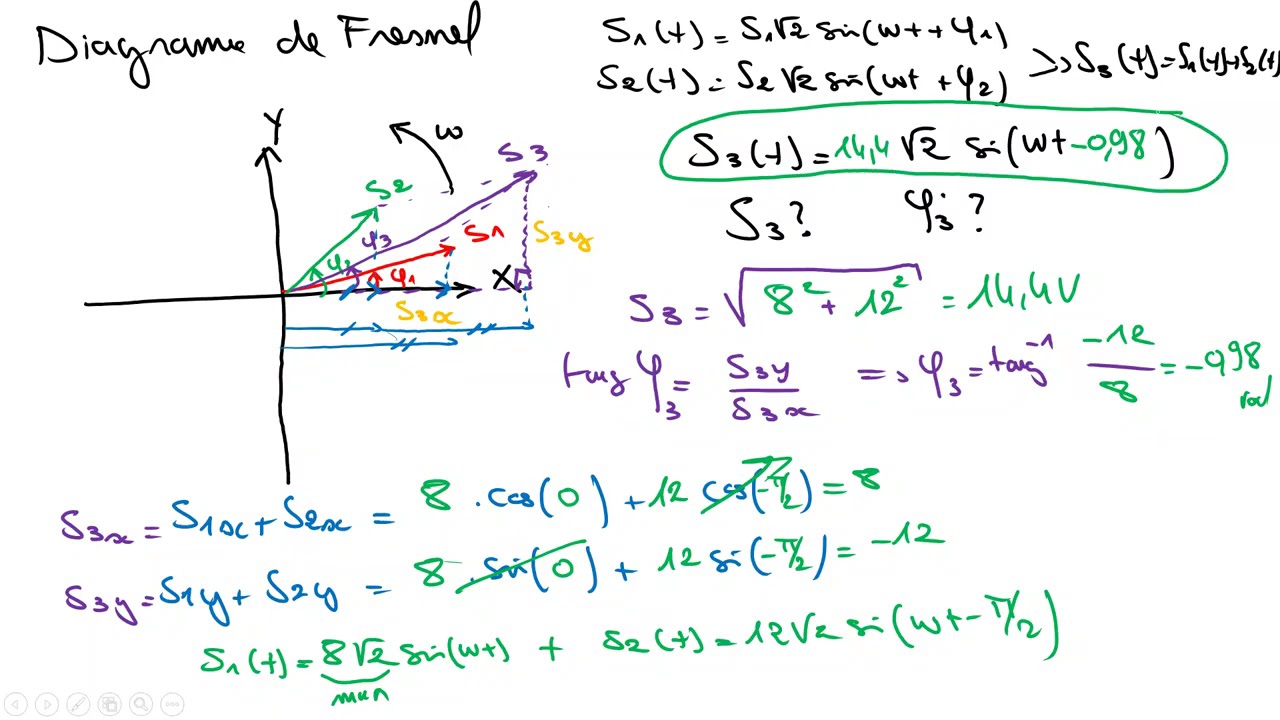 Diagramme de Fresnel
S1(t) = S1√2 sin(wt + φ1)
S2(t) = S2√2 sin(wt + φ2)
=> S3(t) = S1(t) + S2(t)
S3(t) = 14,4 √2 sin(wt - 0,98)
S3? φ3?
Y
w
S3
S2
S1
S3y
φ3
φ2
φ1
X
S3x
S3 = √(8² + 12²) = 14,4V
tang φ3 = S3y / S3x => φ3 = tang⁻¹ -12/8 = -0,98 rad
S3x = S1x + S2x = 8 . cos(0) + 12 cos(-π/2) = 8
S3y = S1y + S2y = 8 . sin(0) + 12 sin(-π/2) = -12
S1(t) = 8√2 sin(wt) + S2(t) = 12√2 sin(wt - π/2)